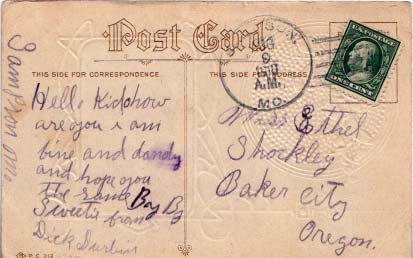 Post Card
THIS SIDE FOR CORRESPONDENCE.
THIS SIDE FOR ADDRESS.
Hello Kid how
are you i am
fine and dandy
and hope you
the same
Bay By
Sweetie from
Dick Durbin
Sampson Mo.
Miss Ethel
Shockley
Baker City
Oregon.
SON
9
A.M.
MO.
U.S. POSTAGE
ONE CENT
P.C. 212